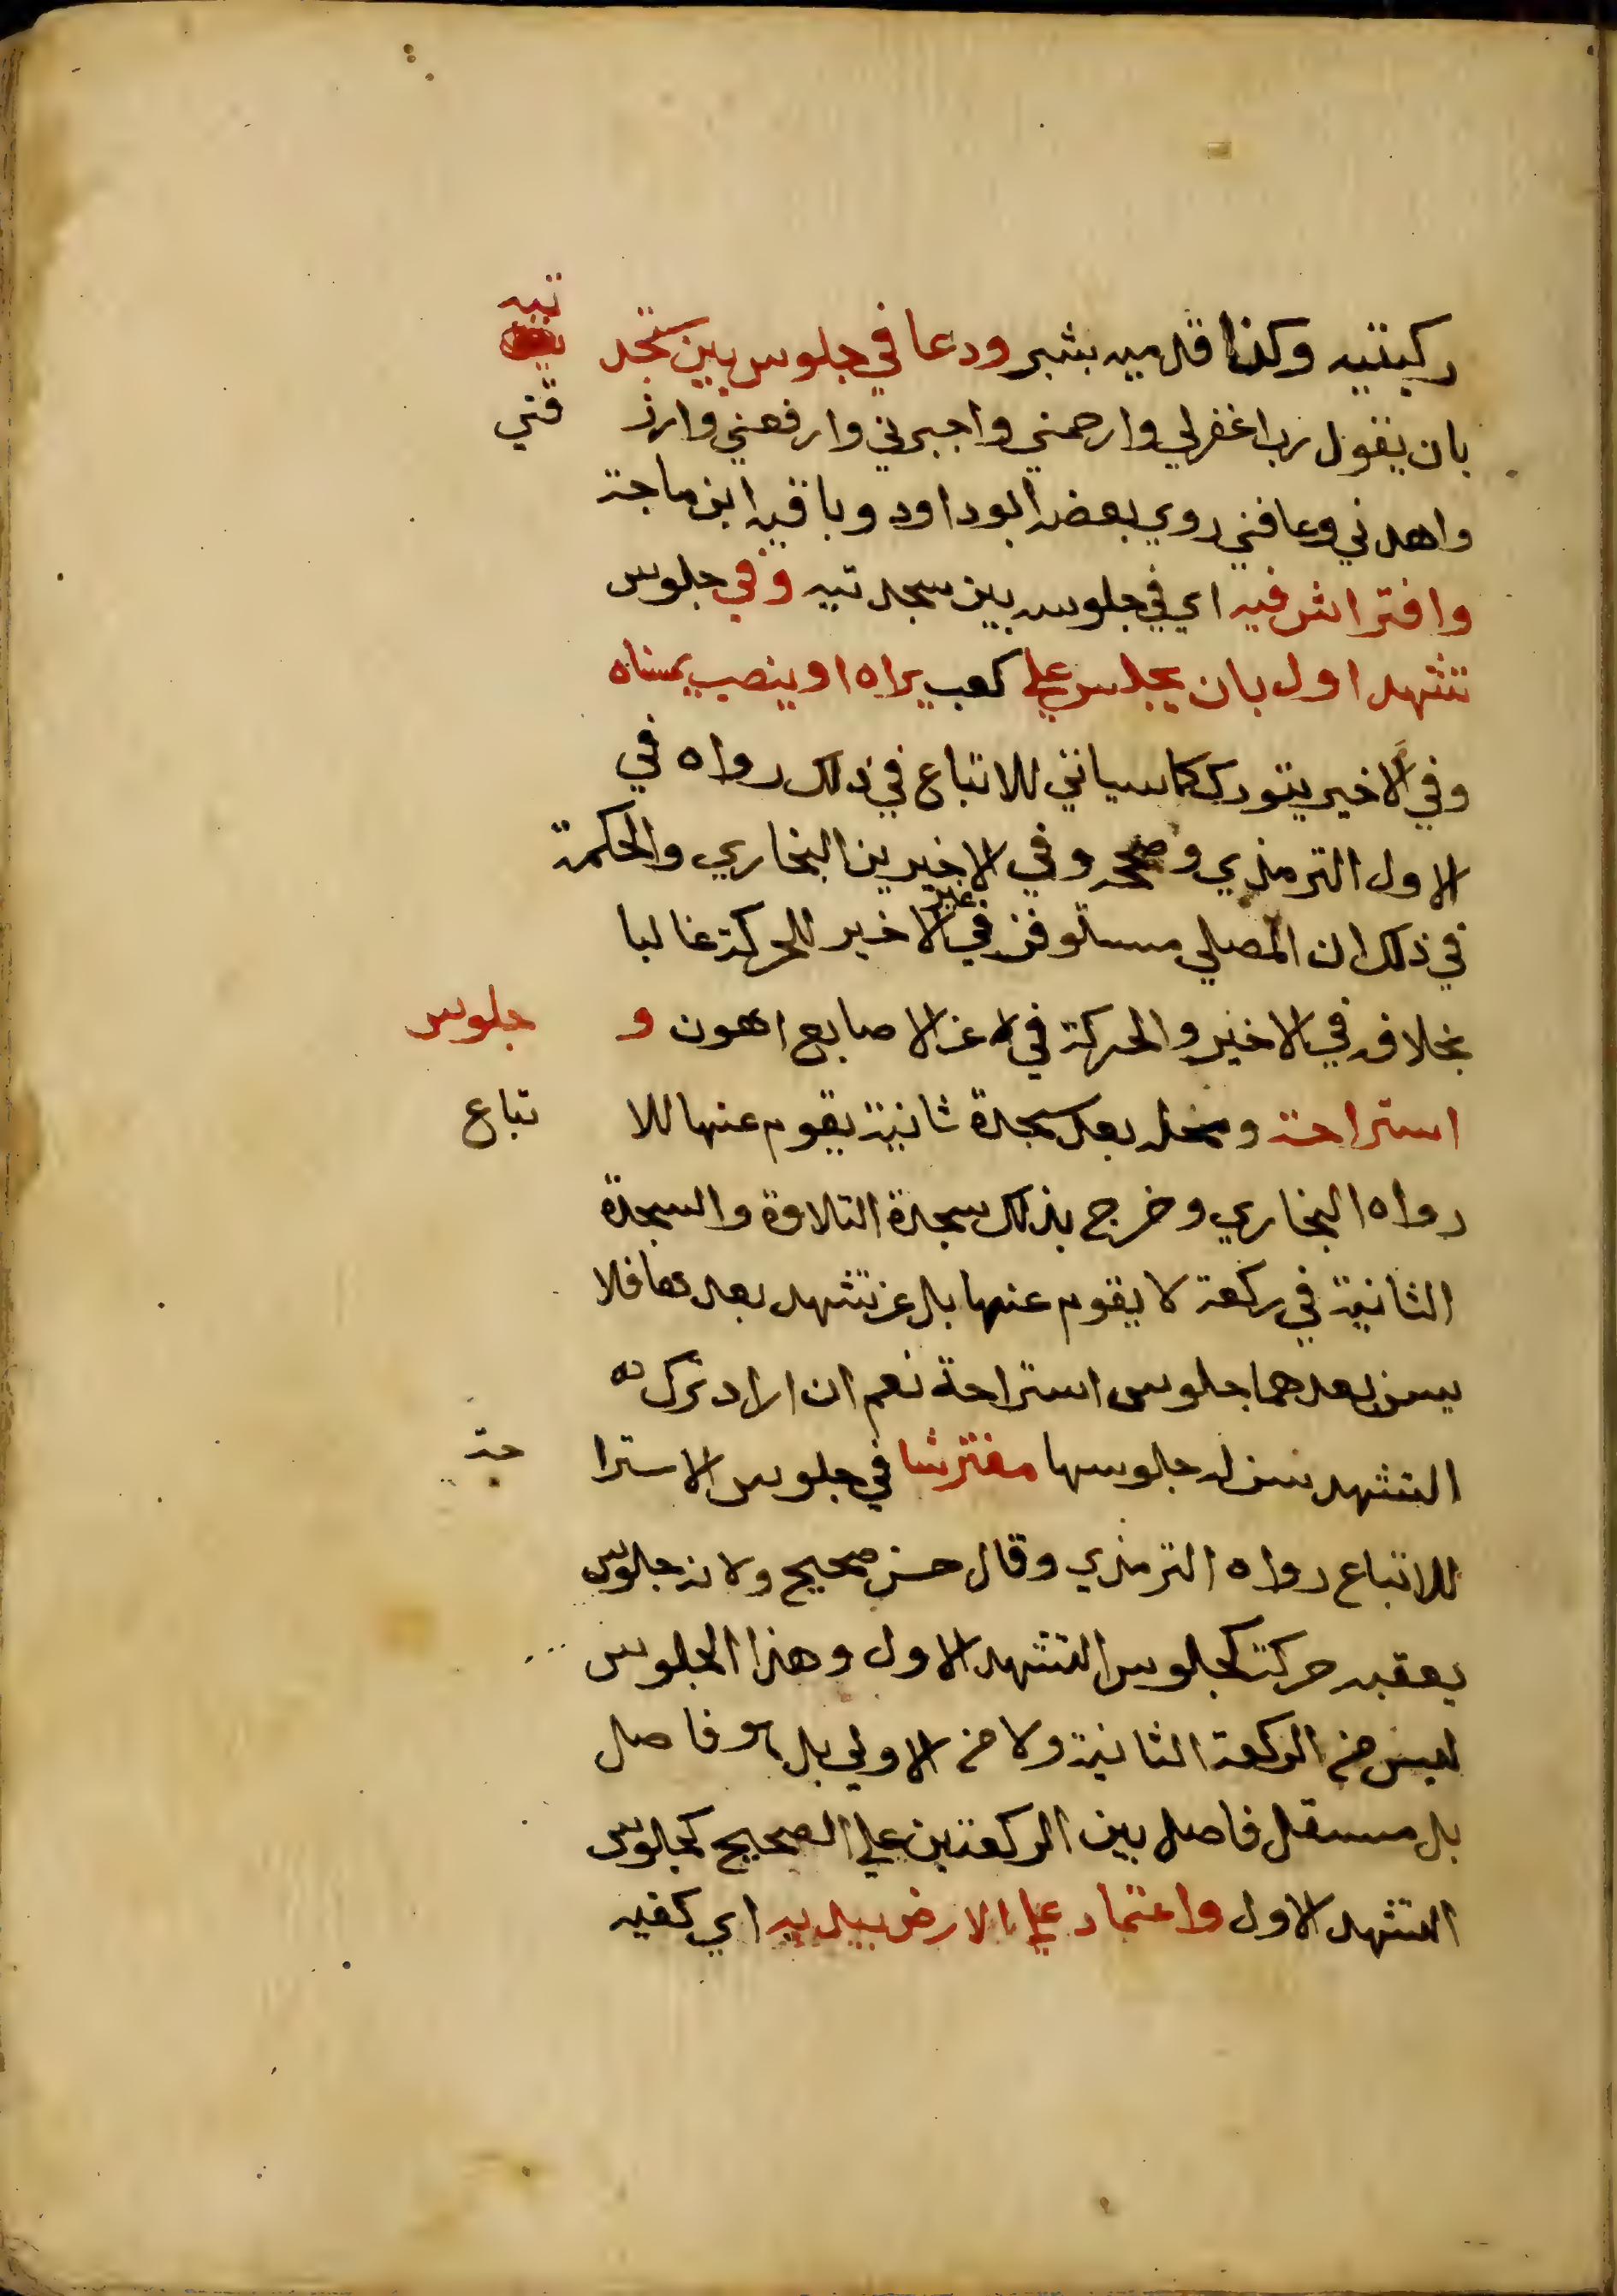 ركبتيه وكذا قدميه بشبر ودعا في جلوس بين سجد تيه
بان يقول رب اغفرلي وارحمني واجبرني وارفعني وارز قني
واهدني وعافني روي بعضه ابو داود وباقيه ابن ماجة
وافتراش فيه اي في جلوسه بين سجدتيه وفي جلوس
تشهد اول بان يجلس علي كعب يراه او ينصب يمناه
وفي الاخير يتورك كما سياتي للاتباع في ذلك رواه في
الاول الترمذي وصححه وفي الاخيرين البخاري والحكمة
في ذلك ان المصلي مستوفز في غير الاخير للحركة غالبا
بخلافه في الاخير والحركة في عن الاصابع اهون و جلوس
استراحة ومحله بعد سجدة ثانية يقوم عنها للا تباع
رواه البخاري وخرج بذلك سجدة التلاوة والسجدة
الثانية في ركعة لا يقوم عنها بل عن تشهد بعدها فلا
يسن بعدهما جلوس استراحة نعم ان اراد ترك
التشهد سن له جلوسها مفترشا في جلوس الاسترا حة
للاتباع رواه الترمذي وقال حسن صحيح ولانه جلوس
يعقبه حركة كجلوس التشهد الاول وهذا الجلوس
ليس من الركعة الثانية ولا من الاولي بل هو فاصل
بل مستقل فاصل بين الركعتين علي الصحيح كجلوس
التشهد الاول واعتماد علي الارض بيديه اي كفيه